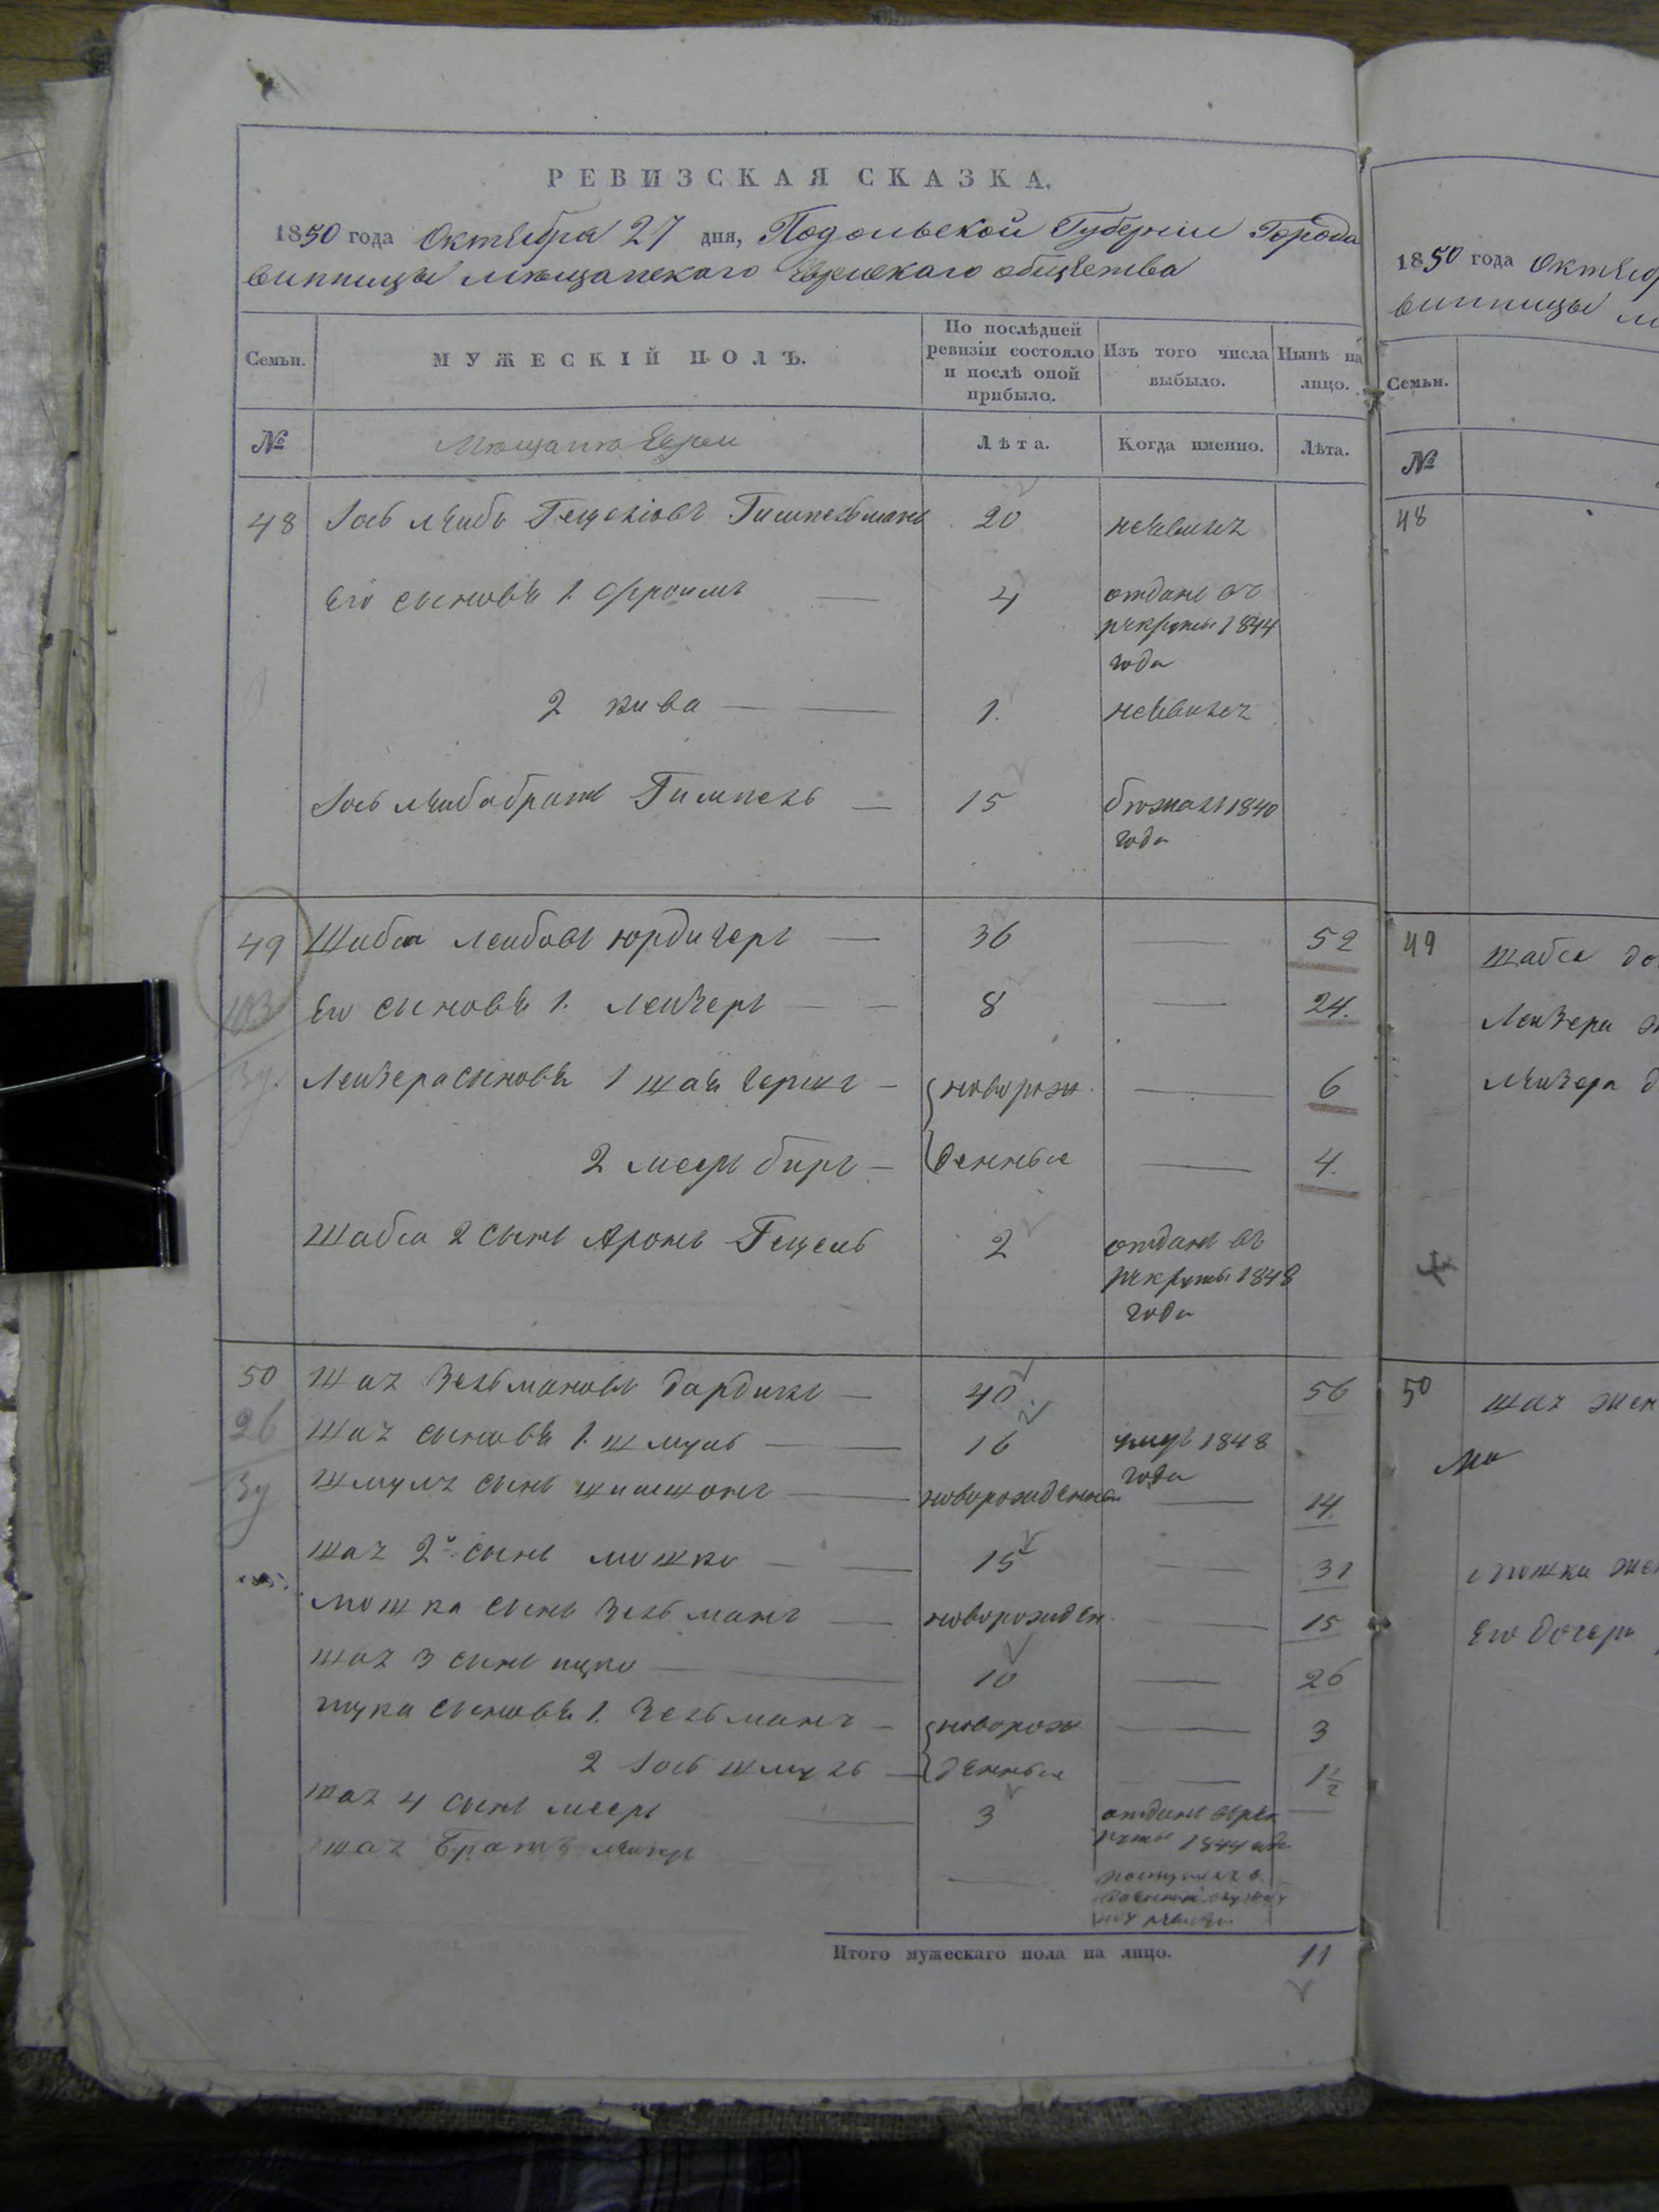 РЕВИЗСКАЯ СКАЗКА.
1850 года Октября 27 дня, Подольской Губерніи Города
Винницы мѣщанскаго Еврейскаго общества
Семьи. МУЖЕСКІЙ ПОЛЪ. По послѣдней ревизіи состояло и послѣ оной прибыло. Изъ того числа выбыло. Нынѣ на лицо.
№ Мѣщанѣ Евреи Лѣта. Когда именно. Лѣта.
48 Іось Лейбъ Гецеліовъ Гимпельманъ 20 неявилсъ
Его сыновья 1. Фроимъ 4 отданъ въ
рекруты 1844
года
2 Кива 1. неявилсъ
Іось Лейба братъ Гимпель 15 бѣжалъ 1840
года
49 Шабса Лейбовъ Юрдичеръ 36 52
Его сыновья 1. Лейзеръ 8 24.
Лейзера сыновья 1 новорож 6
2 Мееръ Беръ денные 4.
Шабса 2 сынъ Аронъ Гецель 2 отданъ въ
рекруты 1848
года
50 Зельмановъ Бардихъ 40 56
26 сыновья 1. Шмуль 16 умеръ 1848
года
Шмуля сынъ Шимшонъ новорожденный 14
2й сынъ Мошко 15 31
Мошка сынъ Зельманъ новорожден. 15
3 сынъ Ицко 10 26
Ицка сыновья 1. Зельманъ новорож 3
2 Іось Шмуль денные 1½
4 сынъ Мееръ 3 отданъ въ рек
руты 1844 года
братъ
Итого мужескаго пола на лицо. 11
1850 года Октяб
Винницы м
Семьи.
№
48
49 Шабса до
Лейзера ж
Лейзера д
50 жен
Мошка жен
Его дочери